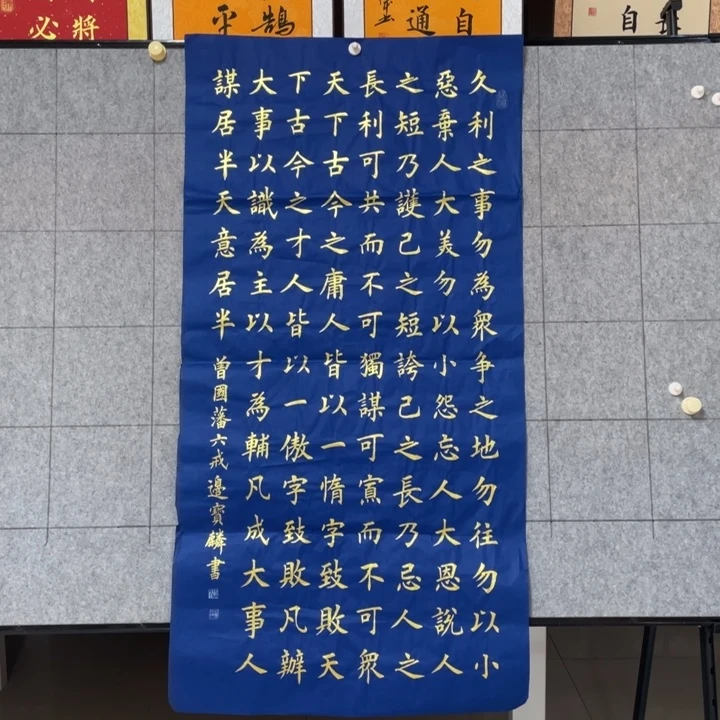 將必
自通
自
久利之事勿為眾争之地勿往勿以小
惡棄人大美勿以小怨忘人大恩說人
之短乃護己之短誇己之長乃忌人之
長利可共而不可獨謀可寡而不可眾
天下古今之庸人皆以一惰字致敗天
下古今之才人皆以一傲字致敗凡辦
大事以識為主以才為輔凡成大事人
謀居半天意居半
曾國藩六戒邊寶麟書